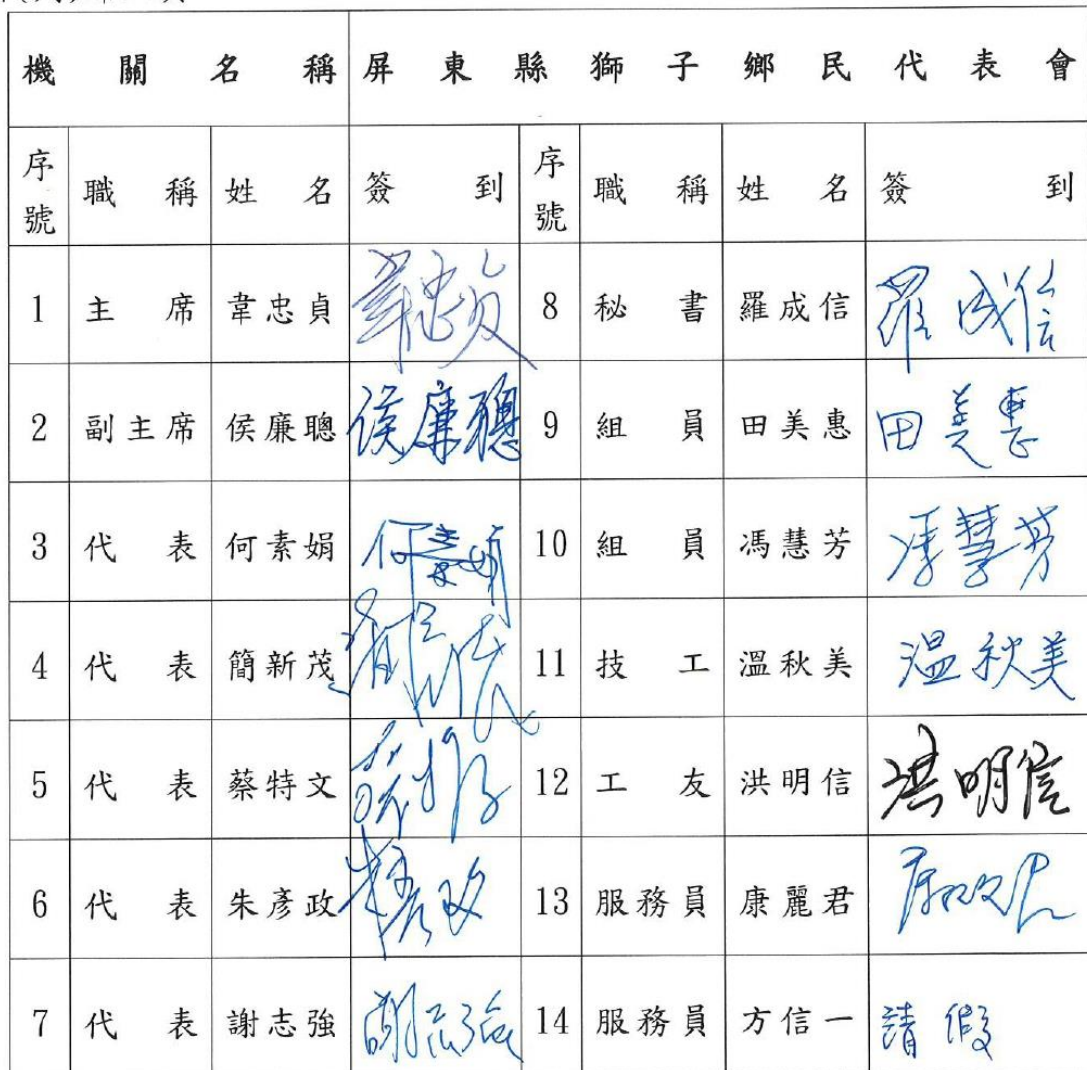 機關名稱 屏東縣獅子鄉民代表會
序號 職稱 姓名 簽到 序號 職稱 姓名 簽到
1 主席 韋忠貞 韋忠貞 8 秘書 羅成信 羅成信
2 副主席 侯廉聰 侯廉聰 9 組員 田美惠 田美惠
3 代表 何素娟 何素娟 10 組員 馮慧芳 馮慧芳
4 代表 簡新茂 簡新茂 11 技工 溫秋美 温秋美
5 代表 蔡特文 12 工友 洪明信 洪明信
6 代表 朱彥政 朱彥政 13 服務員 康麗君
7 代表 謝志強 謝志強 14 服務員 方信一 請假